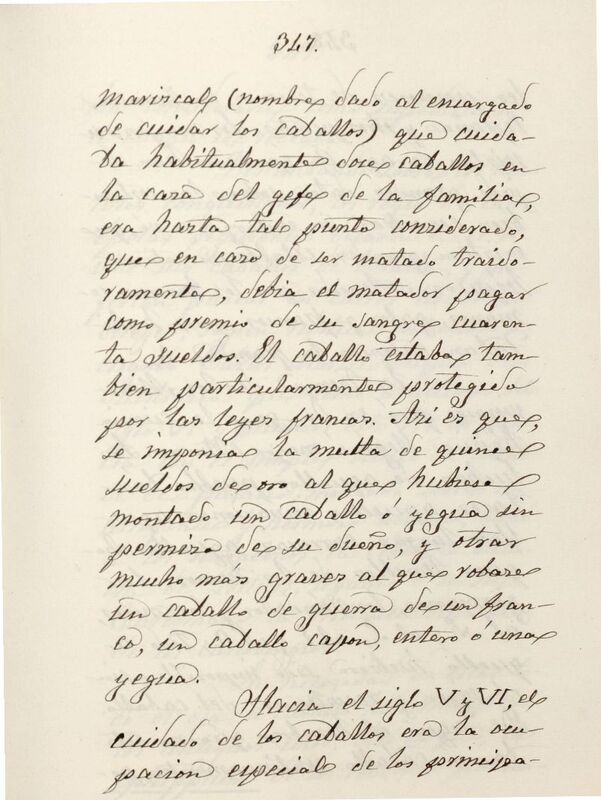 347.
mariscal (nombre dado al encargado
de cuidar los caballos) que cuida-
ba habitualmente doce caballos en
la casa del gefe de la familia,
era hasta tal punto considerado,
que en caso de ser matado traido-
ramente, debia el matador pagar
como premio de su sangre cuaren-
ta sueldos. El caballo estaba tam-
bien particularmente protegido
por las leyes francas. Asi es que,
se imponia la multa de quince
sueldos de oro al que hubiese
montado un caballo ó yegua sin
permiso de su dueño, y otras
mucho más graves al que robare
un caballo de guerra de un fran-
co, un caballo capon, entero ó una
yegua.
Hacia el siglo V y VI, el
cuidado de los caballos era la ocu-
pacion especial de los principa-